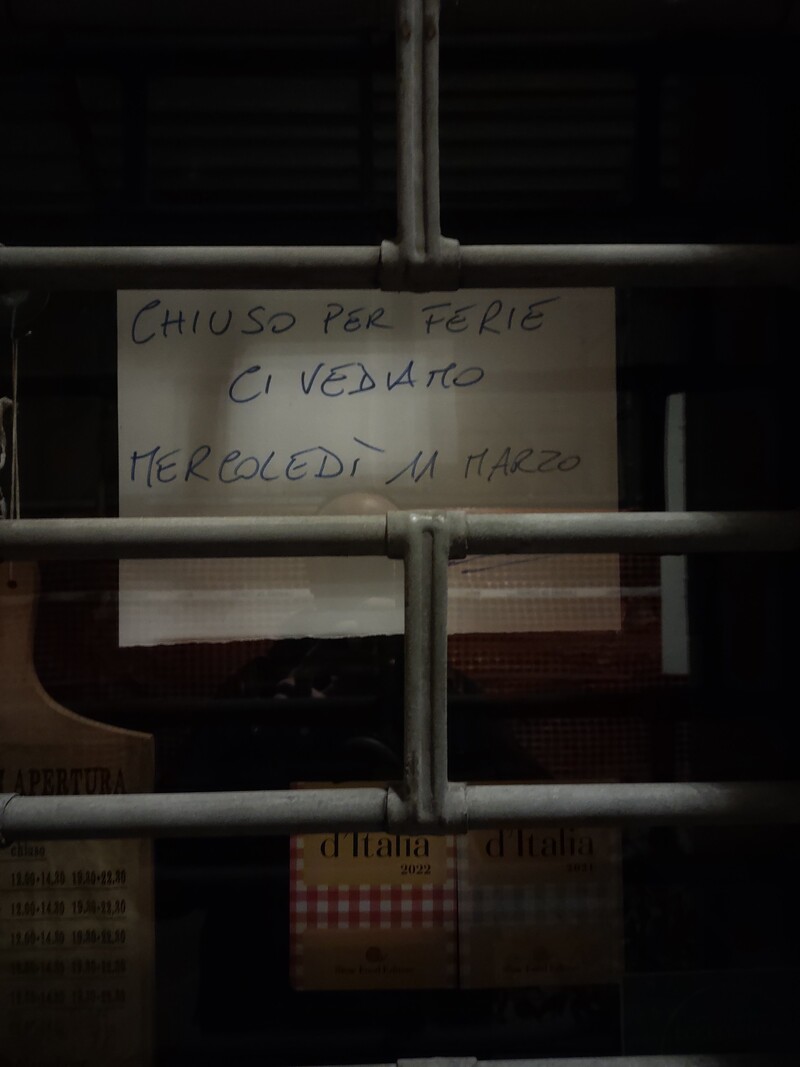 CHIUSO PER FERIE
CI VEDIAMO
MERCOLEDÌ 11 MARZO
APERTURA
chiuso
12.00•14.30 19.30•22.30
12.00•14.30 19.30•22.30
12.00•14.30 19.30•22.30
d'Italia
2022
d'Italia
Slow Food Editore